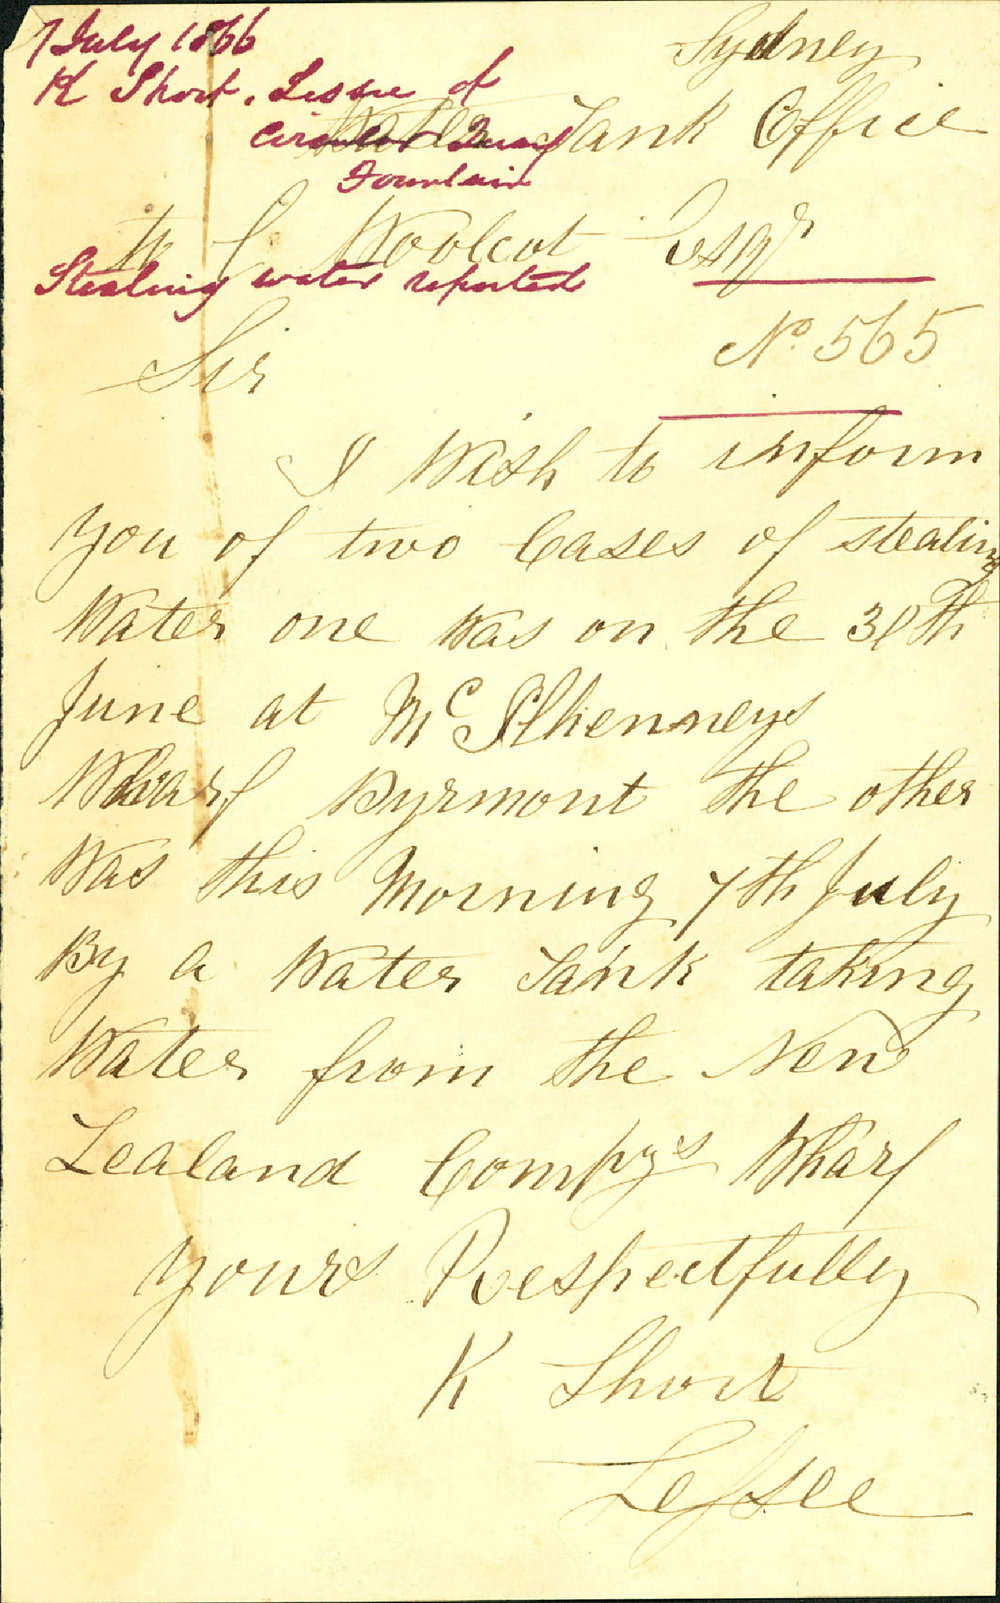 7 July 1866
K Short. Lessee of
Circular Quay
Fountain
Stealing water reported
Sydney
Water Tank Office
W C Woolcot Esqr
No. 565
Sir
I Wish to inform
you of two Cases of stealing
Water one was on the 30th
June at Mc Ilhenneys
Wharf Pyrmont the other
was this Morning 7th July
By a Water Tank taking
Water from the New
Zealand Compys Wharf
yours Respectfully
K Short
Lessee